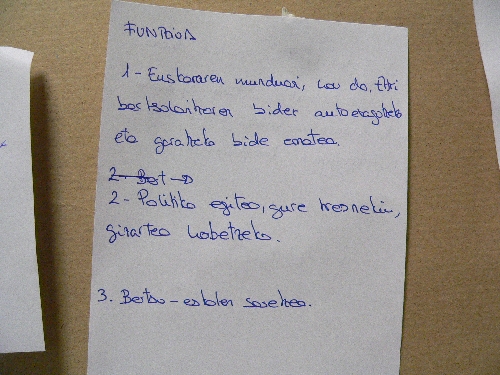 FUNTZIOA
1- Euskararen munduari, hau da, EHri
bertsolaritzaren bidez autoeragiteko
eta garatzeko bide ematea.
2- Bert →
2- Politika egitea, gure tresnekin,
gizartea hobetzeko.
3. Bertso-eskolen sarea.